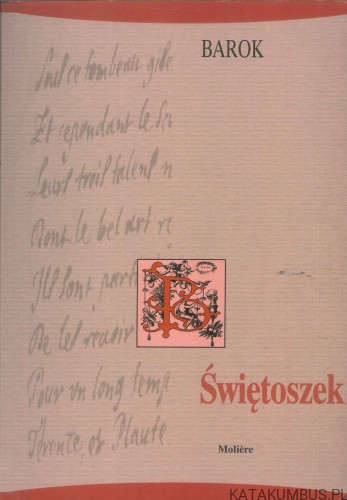 BAROK
Soubs ce tombeau gise
Et cependant le Seu
Leurs trois talens n
Dont le bel art re
Ils sont parti
De les revoir
Pour un long temps
Térence, et Plaute
B
Świętoszek
Molière
KATAKUMBUS.PL